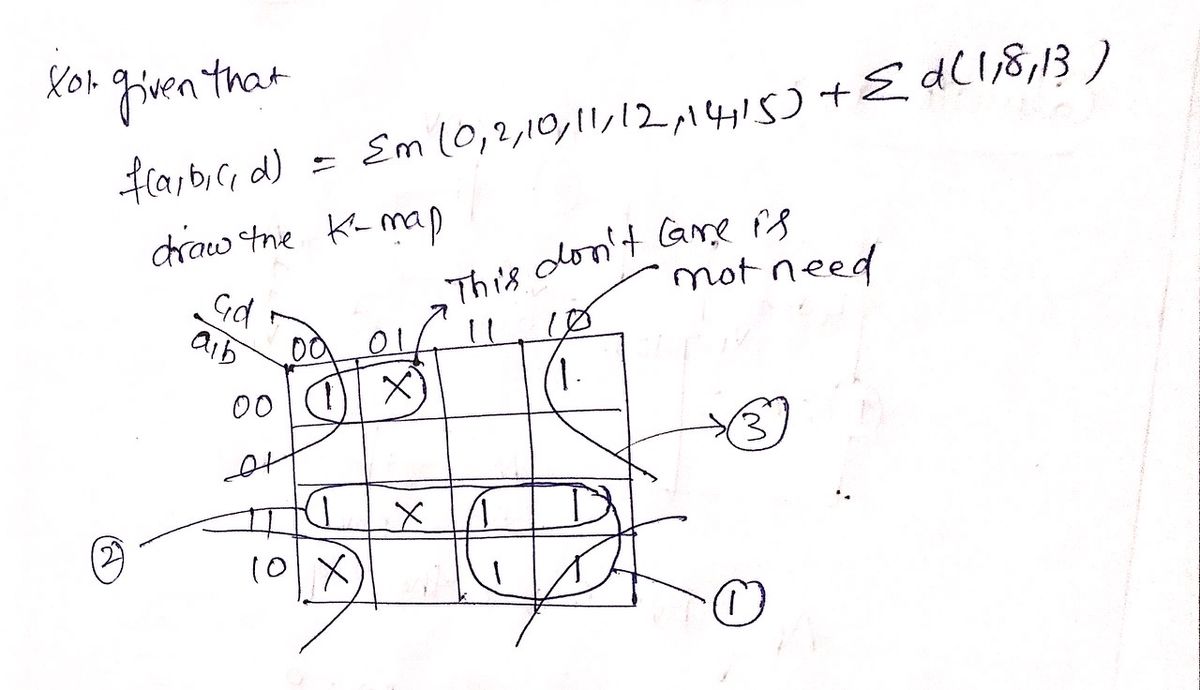 Sol. given that
f(a,b,c,d) = Σm(0,2,10,11,12,14,15) + Σd(1,8,13)
draw the K-map
This don't care is
not need
c,d
a,b
00 01 11 10
00 1 X 1
01
11 1 X 1 1
10 X 1 1
3
2
1